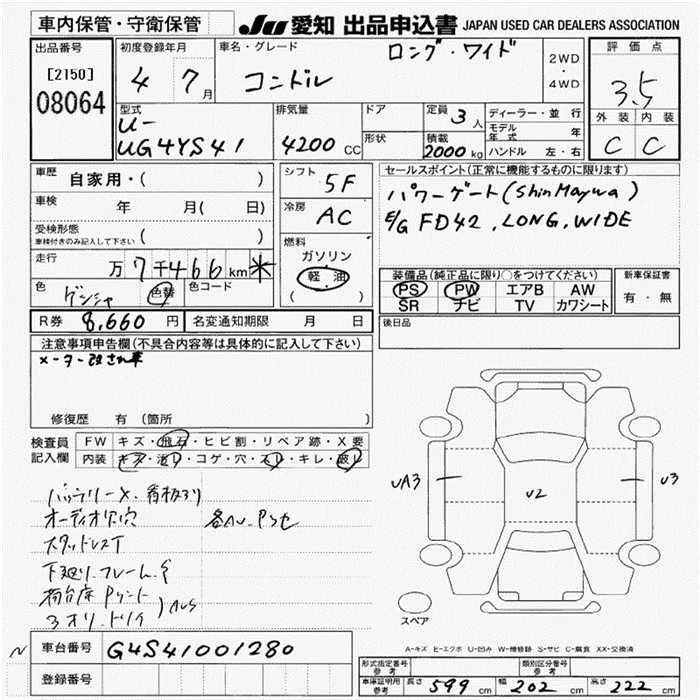 車内保管・守衛保管
JU 愛知 出品申込書 JAPAN USED CAR DEALERS ASSOCIATION
出品番号
[2150]
08064
初度登録年月
4 7月
車名・グレード
ロング・ワイド
コンドル
2WD
・
4WD
評価点
3.5
外装 内装
C C
型式
U-
UG4YS41
排気量
4200 CC
ドア
形状
定員 3人
積載 2000kg
ディーラー・並行
モデル年式 年
ハンドル 左・右
車歴 自家用・( )
車検 年 月( 日)
受検形態
車検付きのみ記入して下さい ( )
走行 万 7千466km *
色 ゲンシャ 色替 色コード
シフト 5F
冷房 AC
燃料
ガソリン
軽油
( )
セールスポイント(正常に機能するものに限ります)
パワーゲート(ShinMaywa)
E/G FD42. LONG. WIDE
装備品(純正品に限り○をつけてください)
PS PW エアB AW
SR ナビ TV カワシート
新車保証書
有・無
R券 8,660円 名変通知期限 月 日
後日品
注意事項申告欄(不具合内容等は具体的に記入して下さい)
メーター改ざれ車
修復歴 有 (箇所
検査員記入欄
FW キズ・飛石・ヒビ割・リペア跡・X要
内装 キズ・汚れ・コゲ・穴・スレ・キレ・破レ
バッテリーX. 看板跡
オーディオ穴 各AU. Pンセ
スタッドレスT
下廻り. フレーム. S
荷台床Pント
3オリ.
UA3
U2
U3
スペア
A-キズ E-エクボ U-凹み W-補修跡 S-サビ C-腐食 XX-交換済
車台番号 G4S41001280
登録番号
形式指定番号 参考
類別区分番号 参考
車庫証明用 参考 長さ 599cm 幅 202cm 高さ 222cm